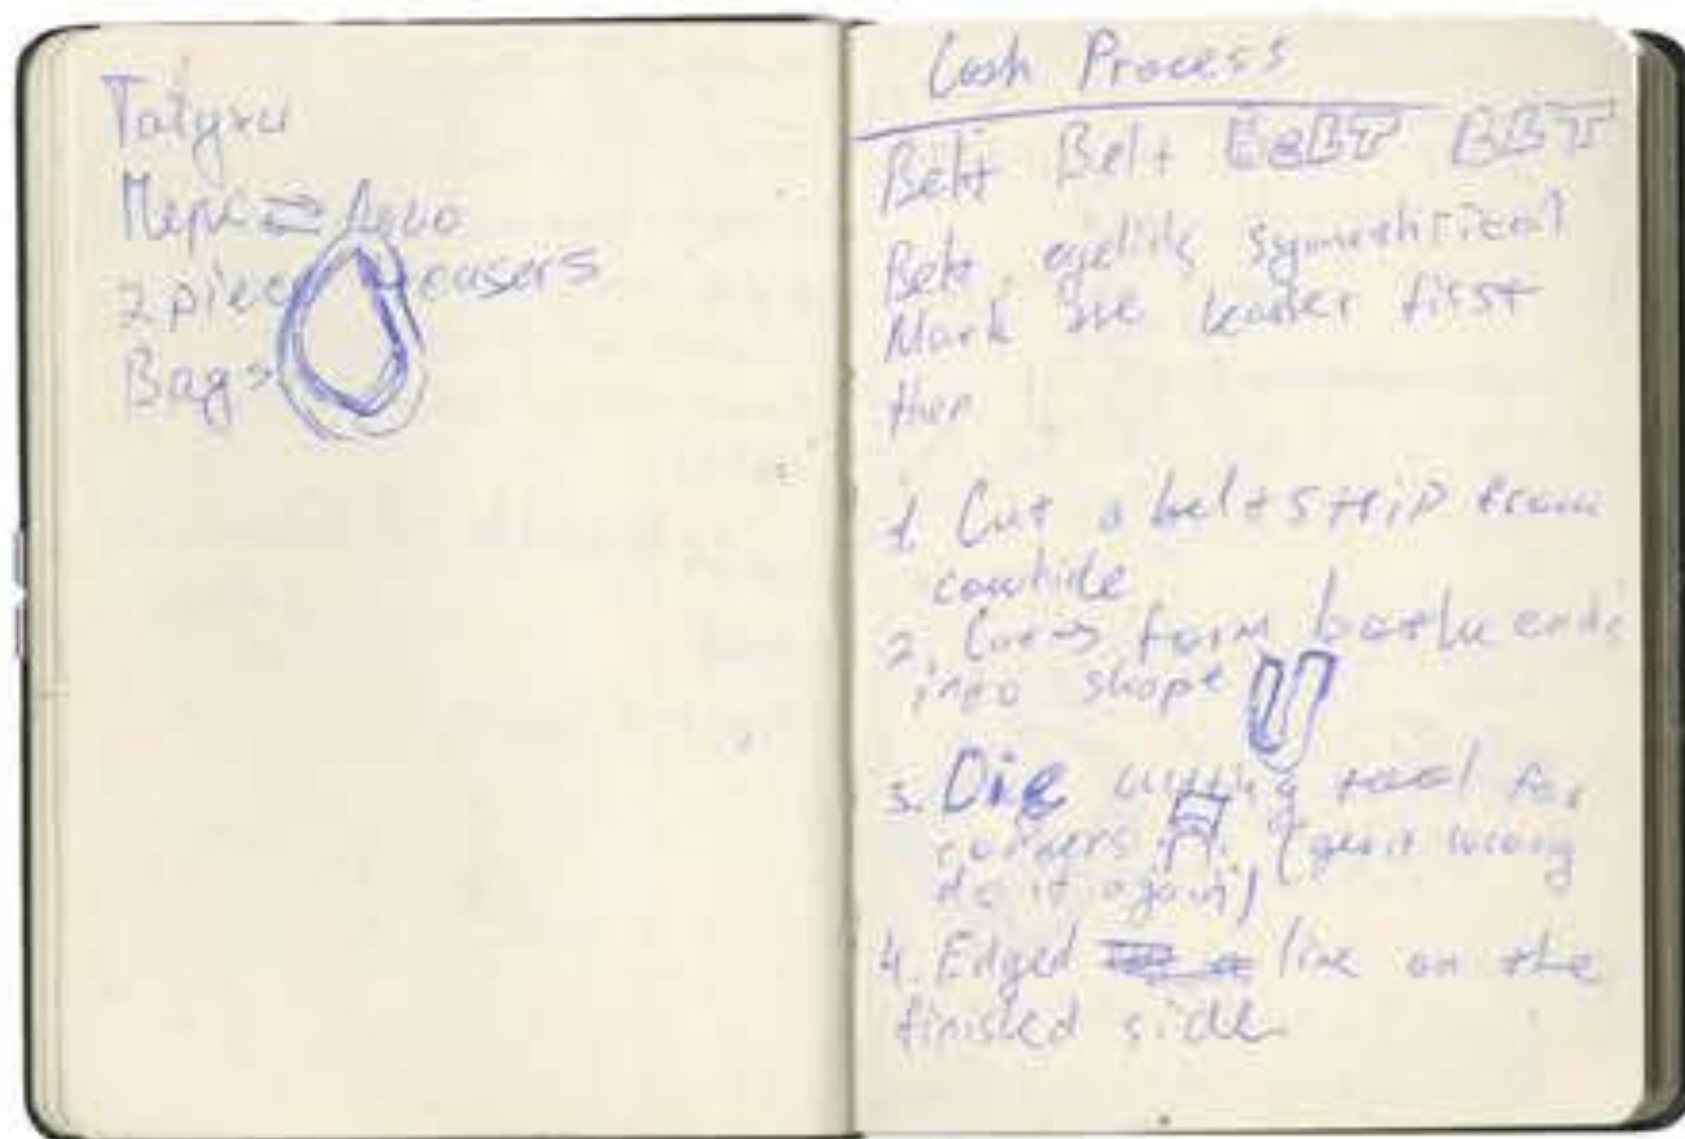 Татухи
Мерс ⇄ Дено
2 piec
Bags
Cosh Process
Belt Belt BeBT BBT
Belt eyelids symmethrical
Mark the leather first
then
1. Cut a belt strip from
cowhide
2. Cut → form both ends
into shape
3. Die cutting tool for
corners (get it wrong
do it again)
4. Edged line on the
finished side